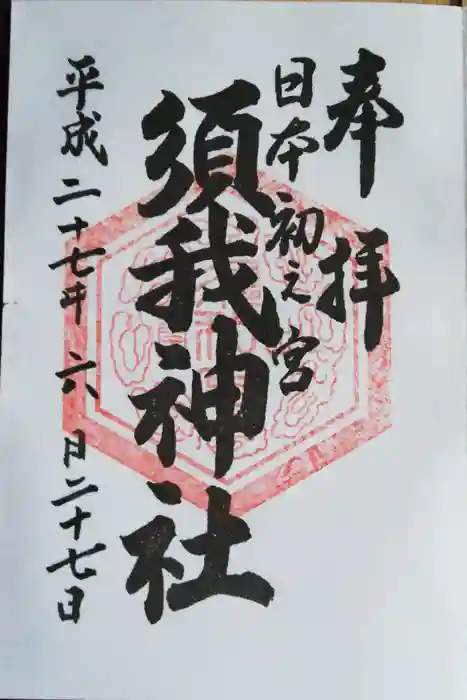 奉拝
日本初之宮
須我神社
平成二十七年六月二十七日